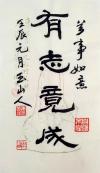 万事如意
有志竟成
壬辰元月玉山人